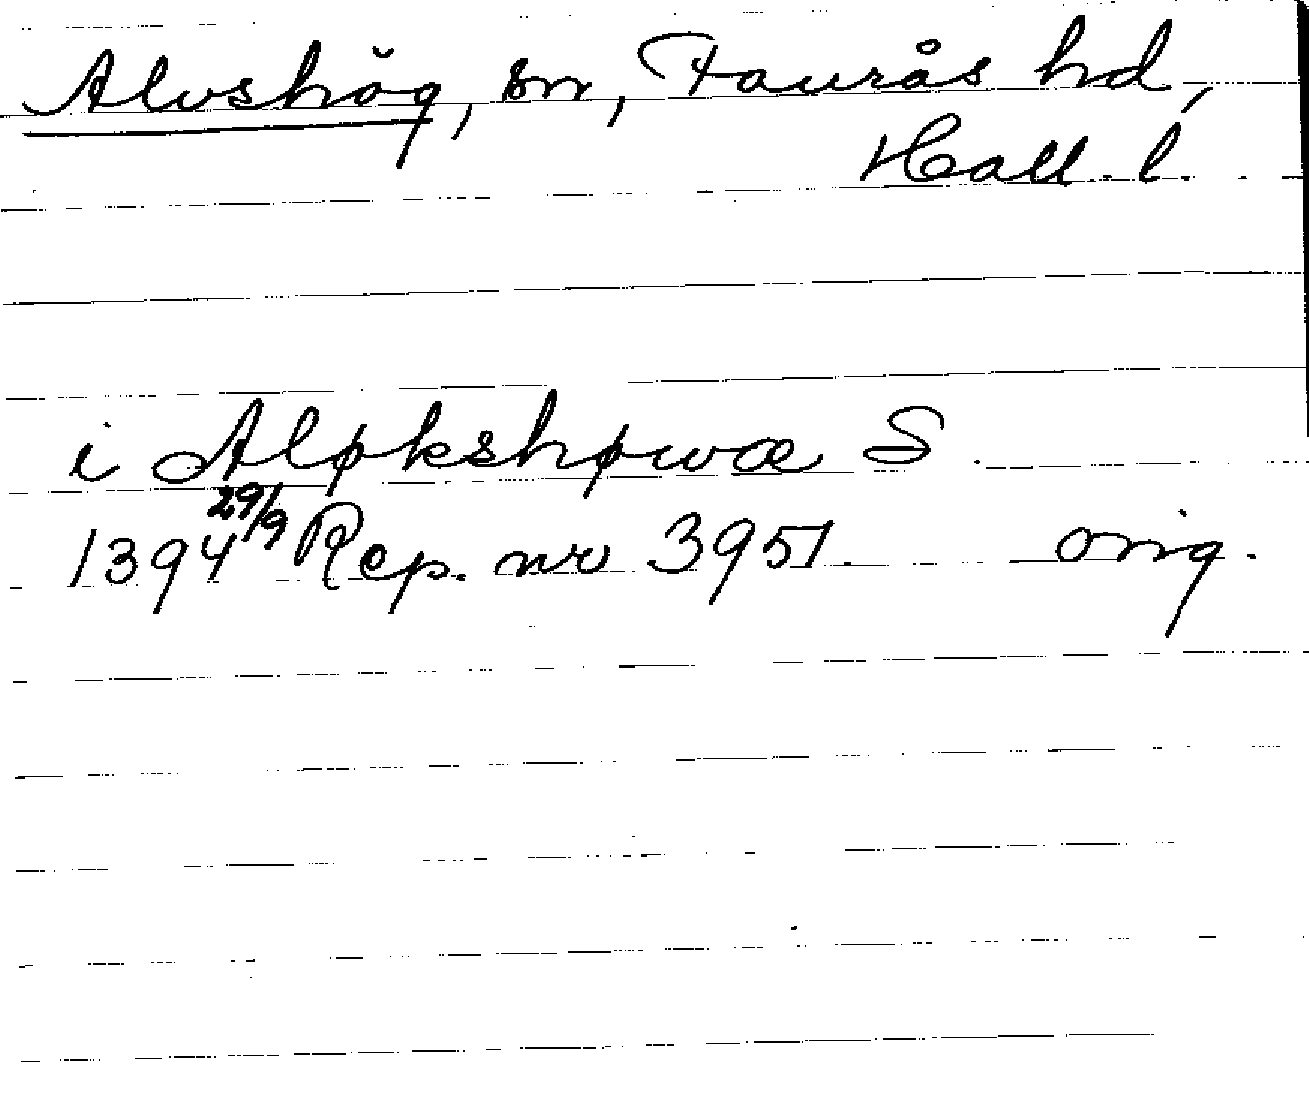 Alvshög, sn, Faurås hd,
Hall. l.
i Aløkshøwæ S
1394 29/9 Rep. nr 3951. orig.